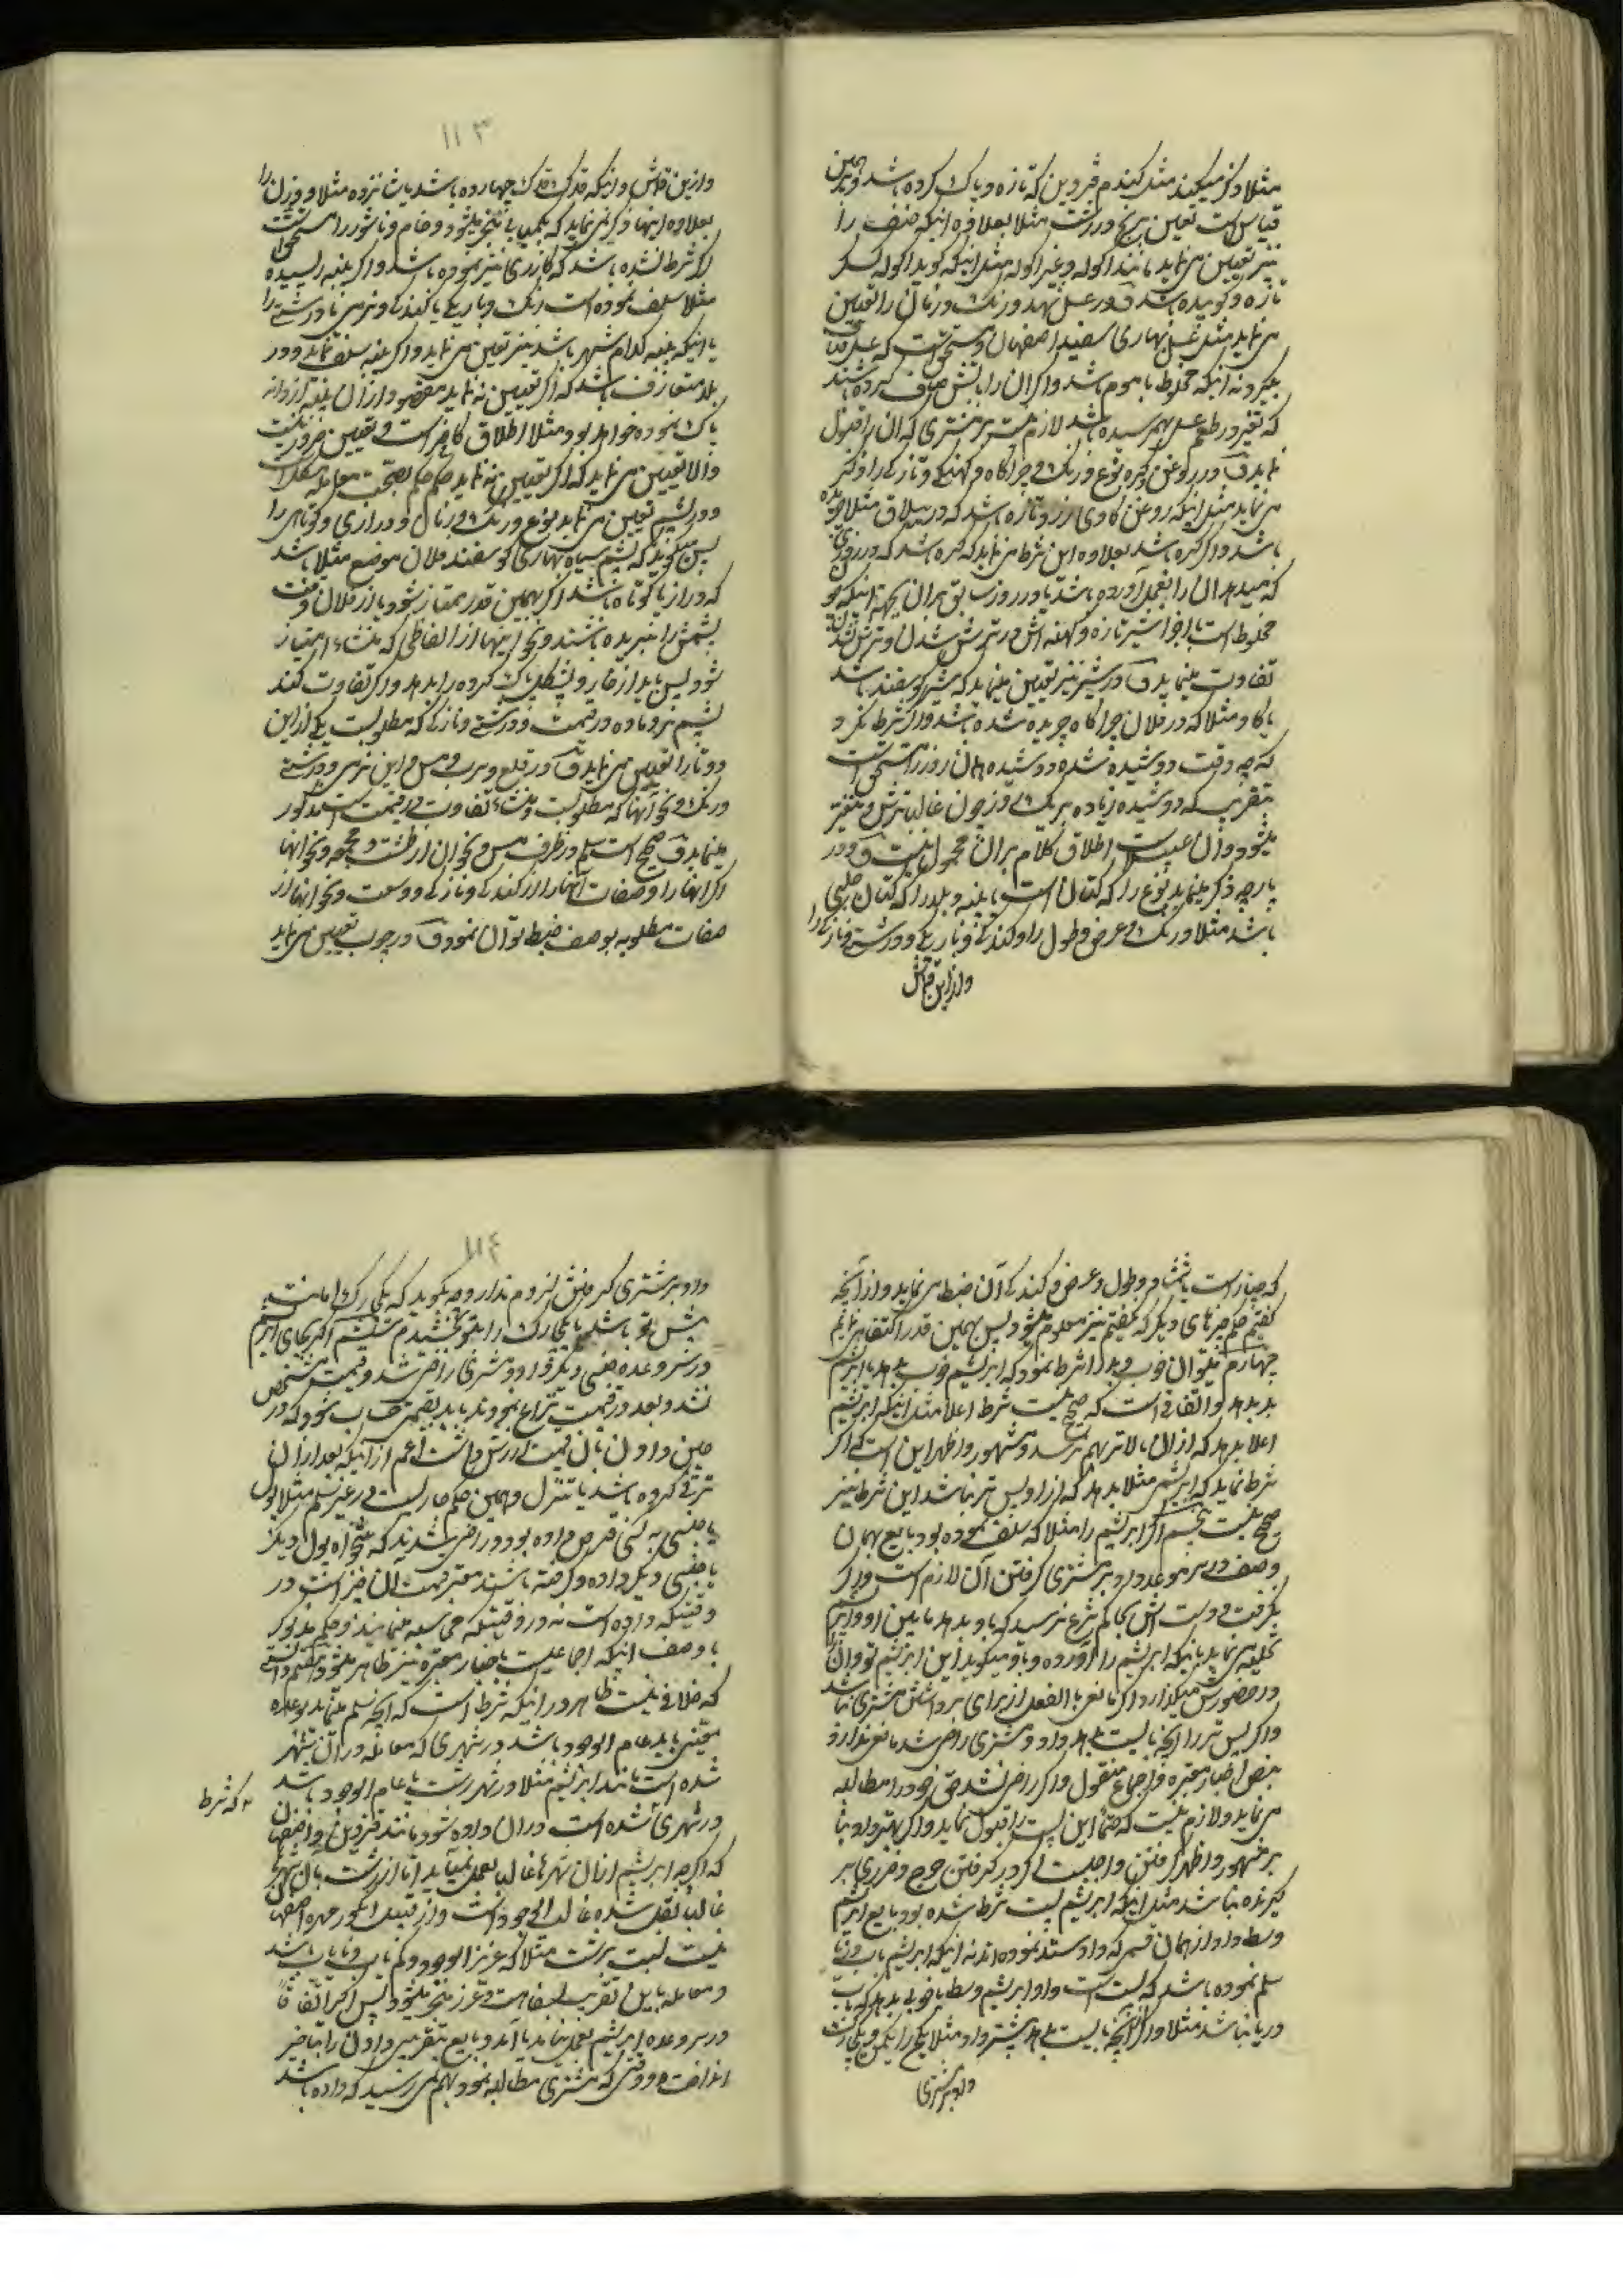 مثلا ذکر میکند مثل کندم قزوین که تازه و پاک کرده باشد و همین
قیاس است تعیین برنج در رشت مثلا بعلاوه اینکه صنف را
نیز تعیین می نماید مانند اکوله و غیر اکوله مثل اینکه کوید اکوله
تازه و باشد و در عسل بلد و رنک و زمان را تعیین
می نماید مثل عسل بهاری سفید اصفهان و مستحق است که عسل صاف
بگیرد نه اینکه مخلوط با موم باشد و اگر آن را بآتش صاف کرده باشند
که تغیر در طعم عسل بهم رسیده باشد لازم نیست بر مشتری که آن را قبول
نماید و در روغن و کره نوع و رنک و چراکاه و کهنکی و تازکی را ذکر
می نماید مثل اینکه روغن کاوی زرد و تازه باشد که در ییلاق مثلا
باشد و اگر کره باشد بعلاوه این شرط می نماید که کره باشد که در روزی
که میدهد آن را بعمل آورده باشد یا در روز سابق بر آن بجهة اینکه
مخلوط است باجزا شیر تازه و کهنه اش در ترش شدن و ترش نشدن
تفاوت مینماید و در شیر نیز تعیین مینماید که شیر کوسفند باشد
یا کاو مثلا که در فلان چراکاه چریده شده باشد و اگر شرط نکرد
که چه وقت دوشیده شده دوشیده همان روز را مستحق است
بتقریب که دوشیده زیاده بر یک روز چون غالبا ترش و متغیر
میشود و آن عیب است اطلاق کلام بر آن محمول نیست و در
پارچه ذکر مینماید نوع را که کتان است یا پنبه و بلد را که کتان حلبی
باشد مثلا و رنک و عرض و طول را و کندکی و باریکی و درشتی و نازکی را
و از این قماش
۱۱۳
و از این قماش و اینکه چهارده باشد یا شانزده مثلا و وزن را
بعلاوه اینها ذکر نمی نماید که بکمیابی منجر میشود و خام و ناشور را مستحق است
اگر شرط نشده باشد که کازری نیز نموده باشد و اگر پنبه ریسیده
مثلا سلف نموده است رنک و باریکی یا کندکی و نرمی یا درشتی را
یا اینکه پنبه کدام شهر باشد نیز تعیین می نماید و اگر پنبه سلف نماید و در
بلد متعارف باشد که اگر تعیین ننماید مقصود از آن پنبه از دانه
پاک نموده خواهد بود مثلا اطلاق کافی است و تعیین ضرور نیست
و الا تعیین می نماید که اگر تعیین ننماید حکم بصحت معامله مشکل است
و در پشم تعیین می نماید نوع و رنک و زمان و درازی و کوتاهی را
پس میکوید که پشم سیاه بهاری کوسفند فلان موضع مثلا باشد
که دراز یا کوتاه باشد اگر بهمین قدر ممتاز شود یا از فلان وقت
پشمش را نبریده باشند و نحو اینها از الفاظی که منشاء امتیاز
شود پس باید از خار و پشکل پاک کرده را بدهد و اگر تفاوت کند
پشم نر و ماده در قیمت و درشتی و نازکی که مطلوب است یکی از این
دو تا را تعیین می نماید و در قلع و سرب و مس و آهن نرمی و درشتی
و رنک و نحو آنها که مطلوب است و منشاء تفاوت در قیمت است مذکور
مینماید و صحیح است سلم در ظرف مس و نحو آن از طشت و مجمعه و نحو آنها
اگر آنها را و صفات آنها را از کندکی و نازکی و وسعت و نحو آنها از
صفات مطلوبه بوصف ضبط توان نمود و در چوب تعیین می نماید
که چنار است یا شمشاد و طول و عرض و کندکی آن ضبط می نماید و از آنچه
کفتیم حکم چیزهای دیگر که نکفتیم نیز معلوم میشود پس بهمین قدر اکتفا می نمائیم
چهارم میتوان خوب و بد را شرط نمود که ابریشم خوب بدهد یا ابریشم
بد بدهد و اتفاقی است که صحیح نیست شرط اعلا مثل اینکه ابریشم
اعلا بدهد که از آن بالاتر بهم نرسد و مشهور و اظهر این است که اگر
شرط نماید که ابریشمی مثلا بدهد که از او پست تر نباشد این شرط نیز
صحیح نیست پنجم اگر ابریشم را مثلا که سلف نموده بود بایع بهمان
وصف در سر موعد داد بر مشتری کرفتن آن لازم است و اگر
نکرفت و دست اش بحاکم شرع نرسید که باو بدهد مابین او و ابریشم
تخلیه می نماید باینکه ابریشم را آورده و باو میکوید این ابریشم تو و آن را
در حضورش میکذارد اگر مانعی بالفعل از برای برداشتن مشتری نباشد
و اگر پست تر از آنچه بایست بدهد داد و مشتری راضی شد مانعی ندارد
بنص اخبار معتبره و اجماع منقول و اگر راضی نشد حق خود را مطالبه
می نماید و لازم نیست که حتما این پست را قبول نماید و اگر بهتر داد بنا
بر مشهور و اظهر کرفتن واجب است اگر در کرفتن حرج و ضرری بر
کیرنده نباشد مثل اینکه ابریشم پست شرط شده بود بایع ابریشم
وسط داد از همان قسم که داد و ستد نموده اند نه اینکه ابریشم باب
سلم نموده باشد که پست است و او ابریشم وسط یا خوبی بدهد که باب
دریا نباشد مثلا و اگر از آنچه بایست بدهد بیشتر داد مثلا یکی را یکمن و یکی
داد بر مشتری
۱۱۴
داد بر مشتری کرفتنش لزوم ندارد چه بکوید که یک چارک امانت
پیش تو باشد یا یک چارک را بتو بخشیدم ششم اگر بجای ابریشم
در سر وعده جنسی دیگر قرار داد و مشتری راضی شد و قیمت مشخص
نشد و بعد در قیمت نزاع نمودند باید بقیمتی حساب نمود که در
حین دادن بآن قیمت ارزش داشت اعم از آنکه بعد از آن
ترقی کرده باشد یا تنزل و همین حکم جاری است در غیر سلم مثلا پول
یا جنسی به کسی قرض داده بود و راضی شدند که تنخواه پول دیگر
یا جنسی دیگر داده و کرفته باشند معتبر قیمت آن چیز است در
وقتیکه داده است نه در وقتیکه محاسبه مینمایند و حکم مذکور
با وصف اینکه اجماعی است باخبار معتبره نیز ظاهر میشود هفتم دانستی
که خلافی نیست ظاهر در اینکه شرط است که آنچه سلم مینماید بوعده
معینی باید عام الوجود باشد در شهری که معامله در آن شهر
شده است مانند ابریشم مثلا در شهر رشت یا عام الوجود باشد
در شهری که شرط شده است در آن داده شود مانند قزوین و اصفهان
که اگرچه ابریشم از آن شهرها غالبا بعمل نمیآید اما از رشت بآن شهرها
غالبا نقل شده غالب الوجود است و از قبیل انکور عمره اصفهان
نیست نسبت برشت مثلا که عزیز الوجود و کم یاب و نایاب باشد
و معامله باین تقریب بسفاهت و غرر منجر میشود پس اگر اتفاقا
در سر وعده ابریشم بعمل نیاید یا آمد و بایع بتقریبی دادن را بتاخیر
انداخت و وقتی که مشتری مطالبه نمود بهم نمی رسید که داده باشد